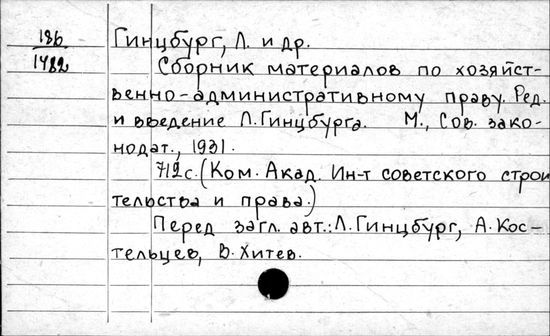 186
1482
Гинцбург, Л. и др.
Сборник материалов по хозяйст-
венно-административному праву. Ред.
и введение Л. Гинцбурга. М., Сов. зако-
нодат., 1931.
712 с. (Ком. Акад. Ин-т советского строи
тельства и права.)
Перед загл. авт.: Л. Гинцбург, А. Кос-
тельцев, В. Хитев.